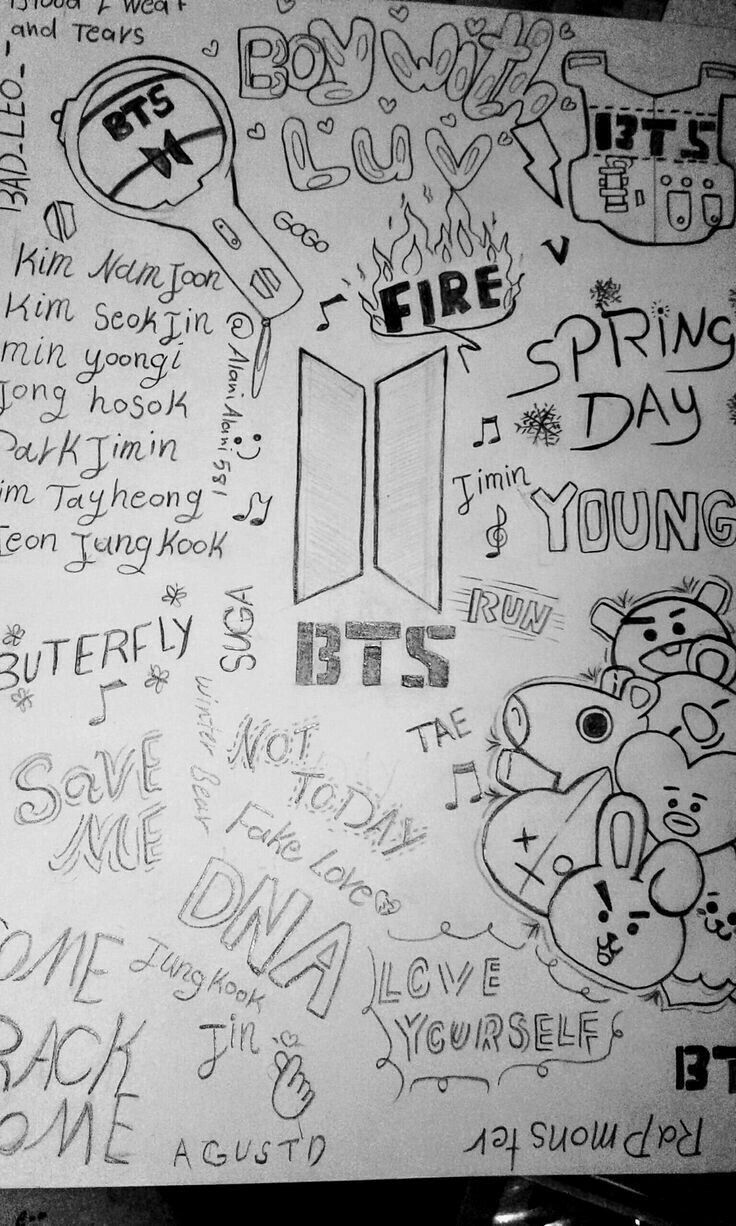 Blood & Wear
and Tears
BAD_LEO_
BTS
BOY With
LUV
BTS
V
GOGO
FIRE
Kim Namjoon
Kim Seokjin
min yoongi
Jong hosok
Park Jimin
im Tayheong
Jeon Jungkook
@AlaniAlani581
SPRING
DAY
Jimin
YOUNG
RUN
BTS
SUGA
BUTERFLY
Winter Bear
TAE
NOT
TODAY
Save
ME
Fake Love
DNA
OME
RACK
OME
JungKook
Jin
LOVE
YOURSELF
AGUSTD
BT
RaPmonster